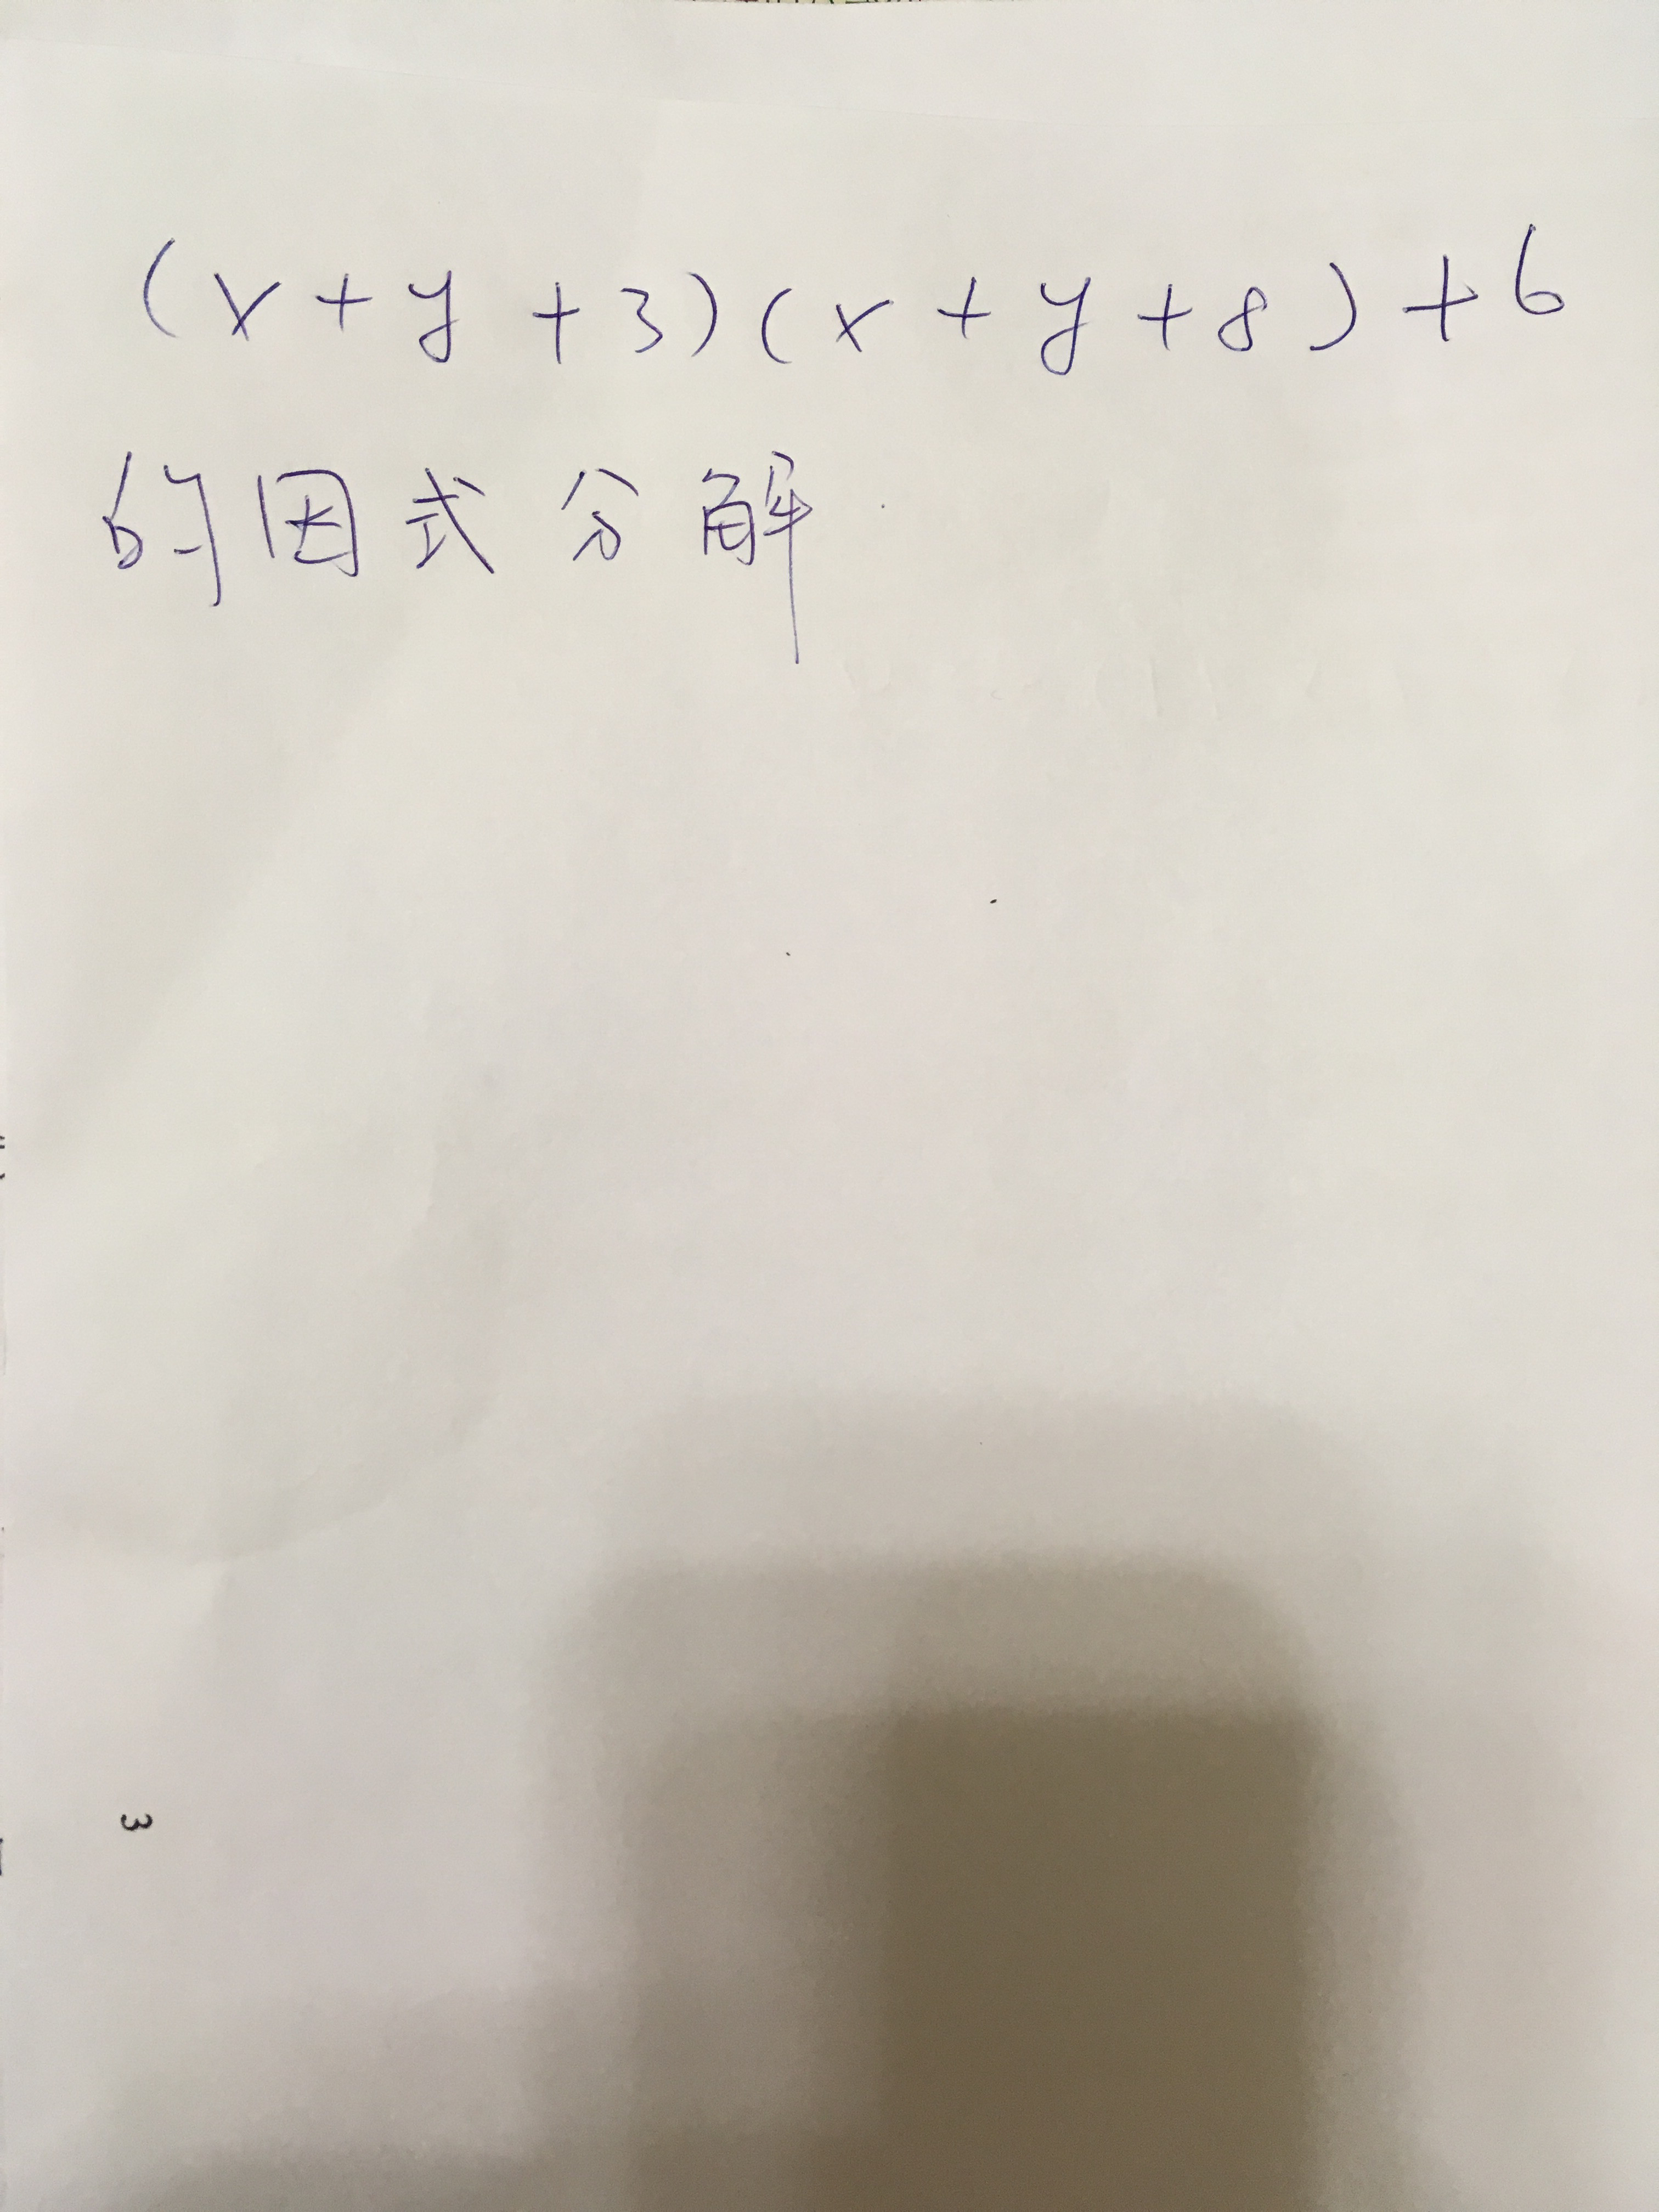 (x+y+3)(x+y+8)+6
的因式分解
3